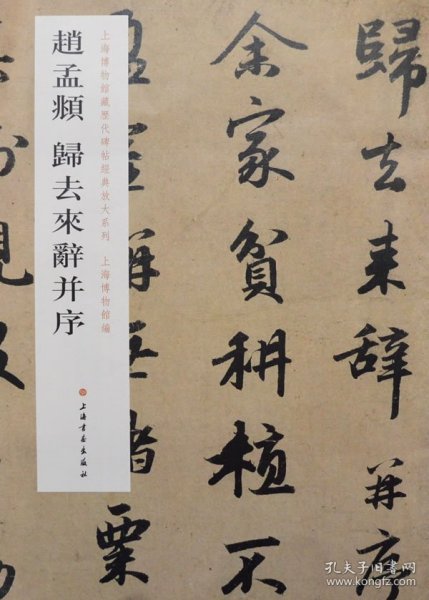 歸去来辞并序
余家貧耕植不
粟
上海博物館藏歷代碑帖經典放大系列 上海博物館編
趙孟頫 歸去來辭并序
上海書畫出版社
孔夫子旧書网
www.kongfz.com